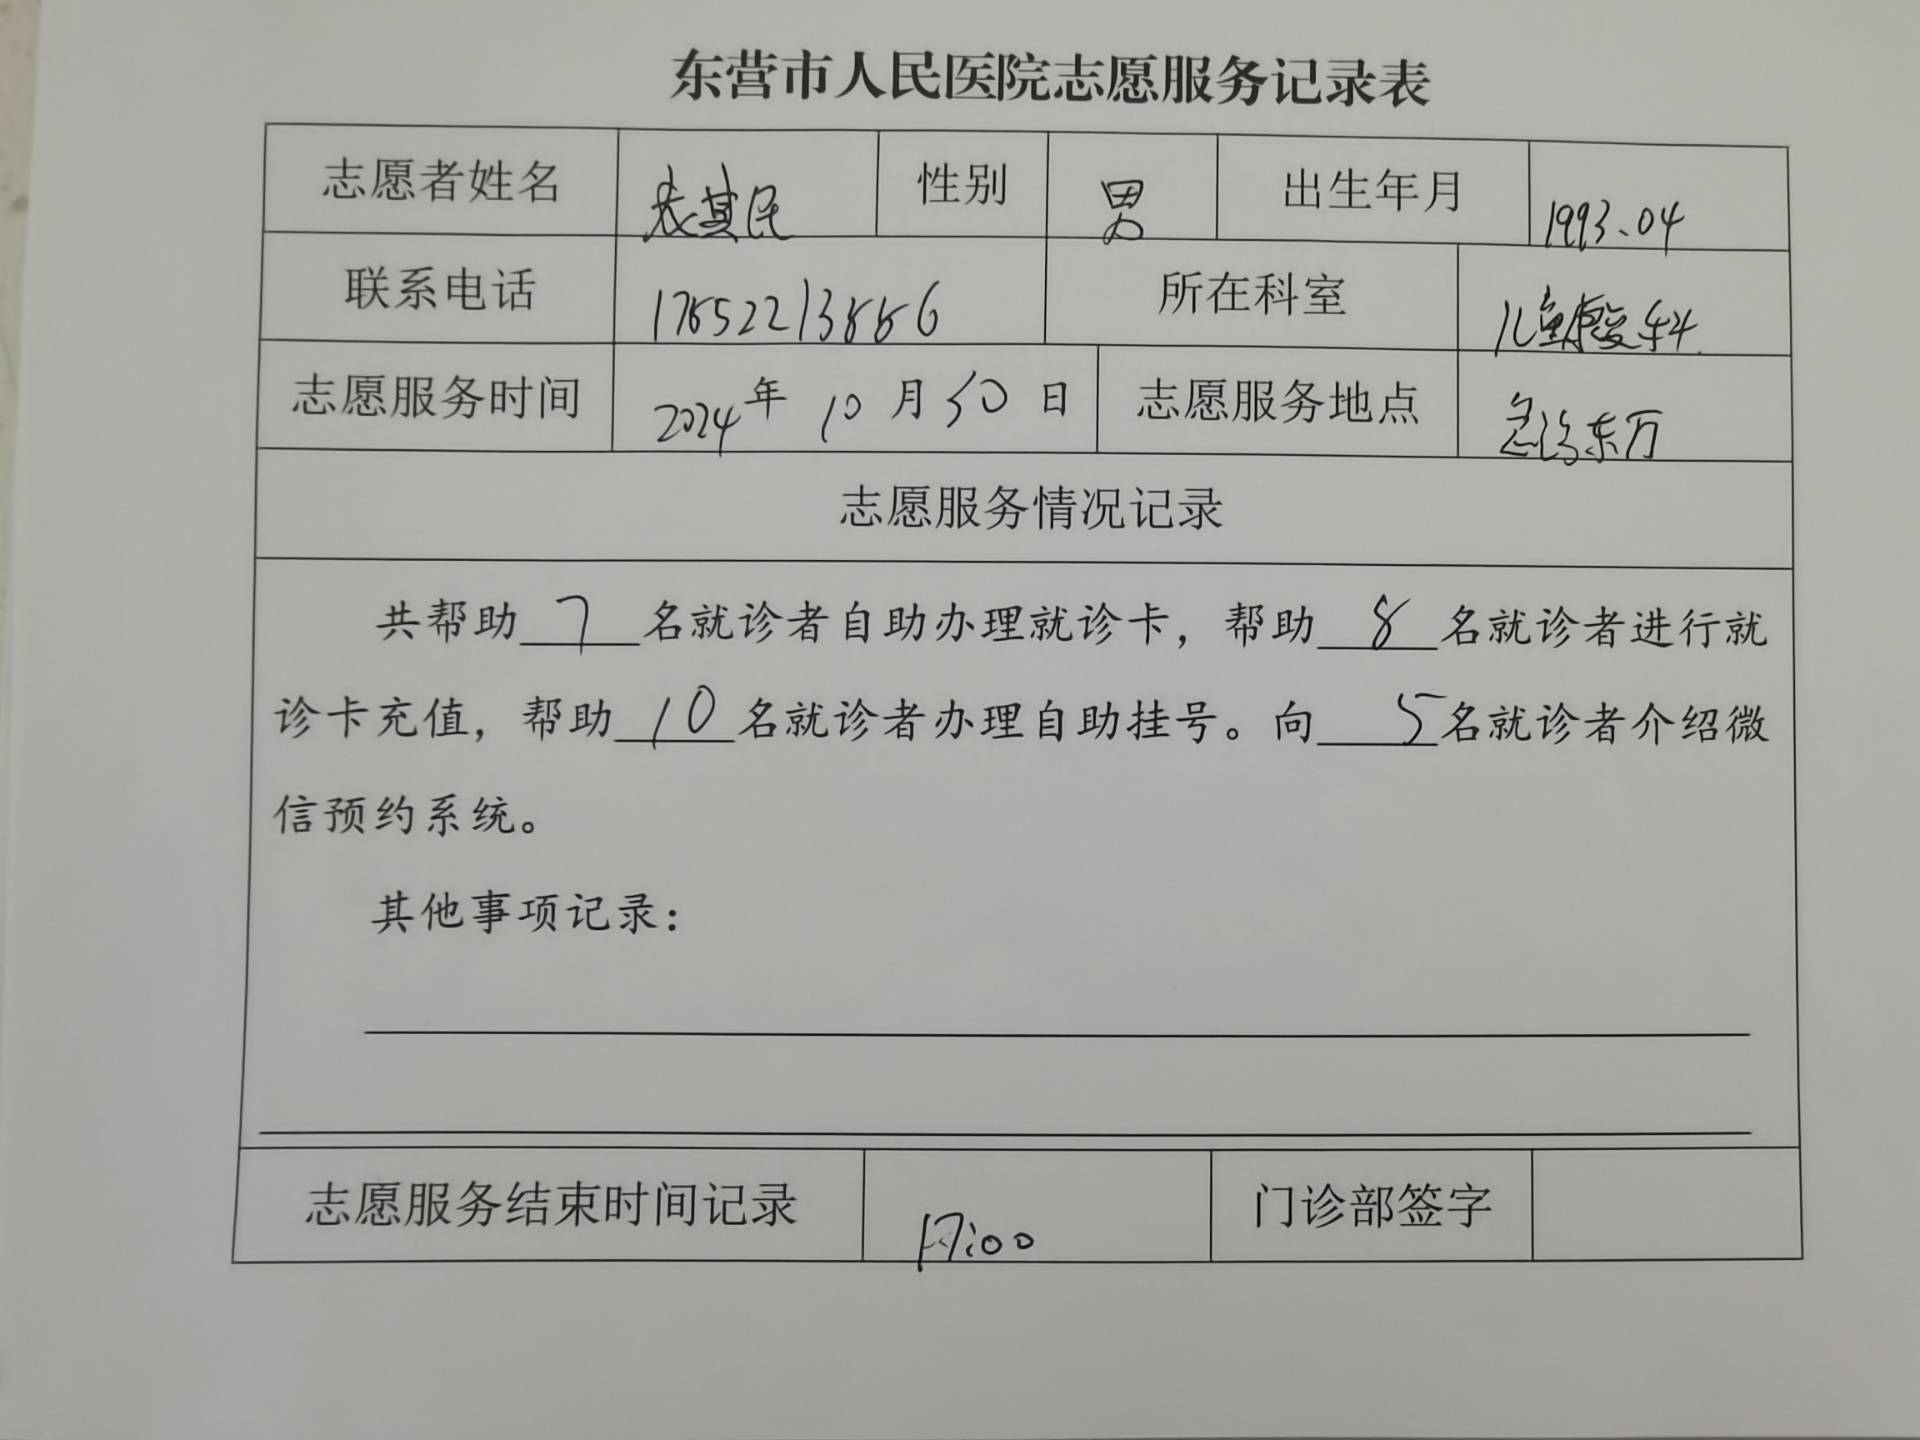 东营市人民医院志愿服务记录表
志愿者姓名 袁其民 性别 男 出生年月 1993.04
联系电话 所在科室 儿童康复科
志愿服务时间 2024年 10月30日 志愿服务地点 急诊东方
志愿服务情况记录
共帮助 7 名就诊者自助办理就诊卡，帮助 8 名就诊者进行就
诊卡充值，帮助 10 名就诊者办理自助挂号。向 5 名就诊者介绍微
信预约系统。
其他事项记录：
志愿服务结束时间记录 17:00 门诊部签字